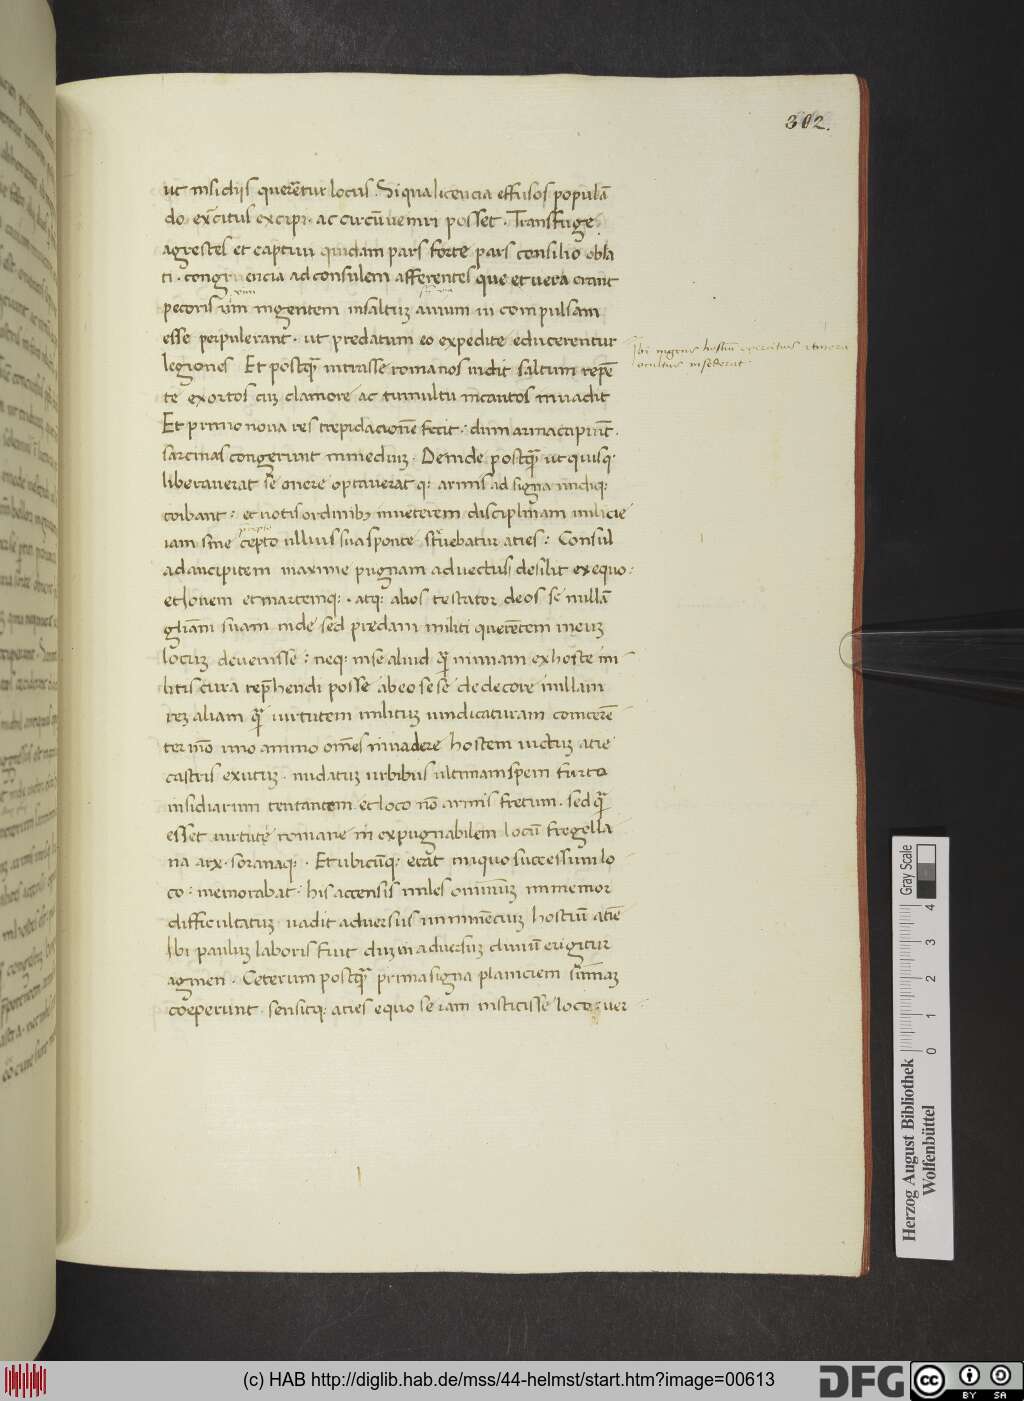 302.
ut insidijs querẽtur locus. Siqua licencia effusos populã
do exercitus excipi. ac circũveniri posset. Transfuge.
agrestes et captivi quidam pars forte pars consilio obla
ti. congruencia ad consulem afferentes que et vera erant
pecoris vim ingentem in saltuʒ avium compulsam
esse perpulerant. ut predatum eo expedite educerentur
legiones Et postq̃ intrasse romanos vidit saltum repẽ
te exortos cuʒ clamore ac tumultu incautos invadit
Et primo nova res trepidacionẽ fecit: dum arma capiũt.
sarcinas congerunt in mediuʒ. Deinde postq̃ ut quisq̇
liberaverat se onere optaverat q: armis ad signa undiq:
coibant: et notis ordinibʒ in veterem disciplinam milicie
iam sine precepto
cepto ullius sua sponte struebatur acies: Consul
ad ancipitem maxime pugnam advectus desilit ex equo:
et Iovem et martemq:. atq: alios testator deos se nullã
gl̃iam suam inde sed predam militi querẽtem in euʒ
locuʒ devenisse: neq: in se aliud q̃ nimiam ex hoste mi
litis cura rep̃hendi posse ab eo se se dedecore nullam
reʒ aliam q̃ virtutem militum vindicaturam comterẽ
ter mõ uno animo om̃es invadere hostem victuʒ acie
castris exutuʒ. nudatuʒ urbibus ultimam spem furto
insidiarum tentantem. et loco nõ armis fretum. sed q̃
esset virtute romane in expugnabilem locũ fregella
na arx. soranaq:. Et ubicũq: erat iniquo successum lo
co: memorabat: his accensis miles omniũ immemor
difficultatum. vadit adversus imminẽtem hostiũ aciẽ
Ibi pauluʒ laboris fuit dum in adversuʒ clivũ erigitur
agmen. Ceterum postq̃ prima signa planiciem sũmaʒ
cœperunt. sensitq: acies equo se iam institisse loco: ver
Ibi ingens hostiũ exercitus itinera
ocultus insederat
Gray Scale
0 1 2 3 4
Herzog August Bibliothek
Wolfenbüttel
(c) HAB http://diglib.hab.de/mss/44-helmst/start.htm?image=00613
DFG
cc
BY SA